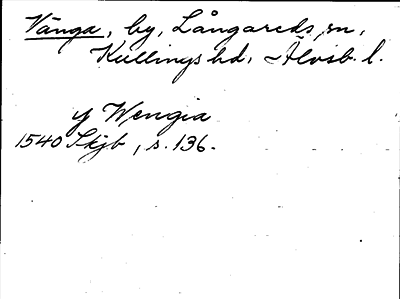 Vånga, by, Långareds sn,
Kullings hd, Älvsb. l.
y Wengia
1540 Skjb, s. 136.